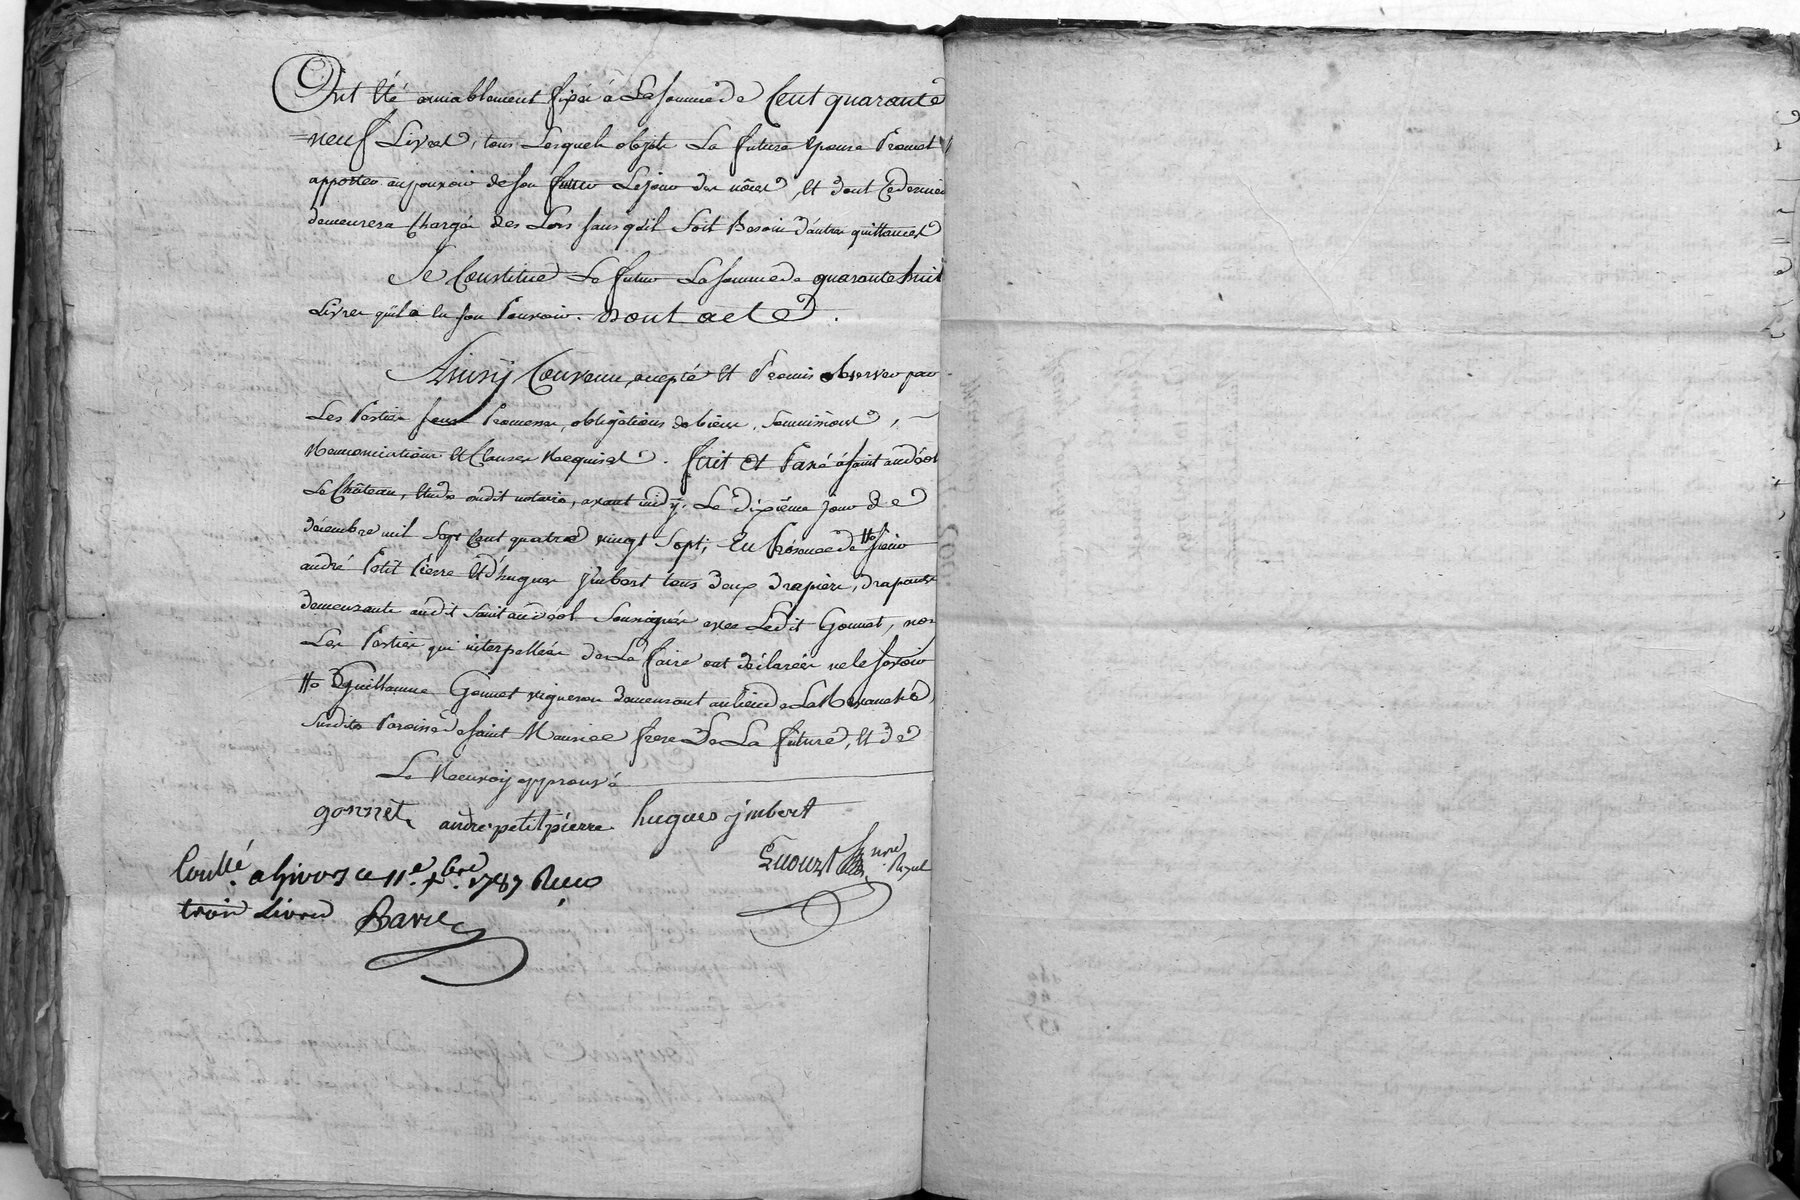 Ont Eté amiablement fixés à La somme de Cent quarante
=neuf Livres, tous Lesquels objets La future Epouse Promet
apporter au pouvoir de son futur Le jour des nôces, Et dont Ce dernier
demeurera Chargé dès Lors sans qu'il Soit Besoin d'autre quittance
Se Constitue Le futur La somme de quarante huit
Livres qu'il a En son Pouvoir. Dont acte.
Ainsy Convenu, accepté Et Promis observer par
Les Parties sous Promesses, obligations de biens, Soumissions,
Renonciations Et Clauses Requises. fait Et Passé à saint andéol
Le Château, Etude dudit notaire, avant midy, Le dixième jour de
décembre mil Sept Cent quatre vingt Sept, En Présence de # sieur
andré Petit Pierre Et d'hugues jmbert tous deux drapiers, drapans
demeurants audit saint andéol Soussignés avec Ledit Gonnet, non
Les Parties qui interpellées de Le faire ont déclarées ne le savoir
# Guillaume Gonnet vigneron demeurant au lieu de La
susdite Paroisse de saint Maurice frere De La future, Et de
Le Renvoy approuvé
gonnet andre petit pierre hugues jmbert
nre Royal
Conllé. a Givors ce 11e. xbre. 1787 Reçu
trois Livres